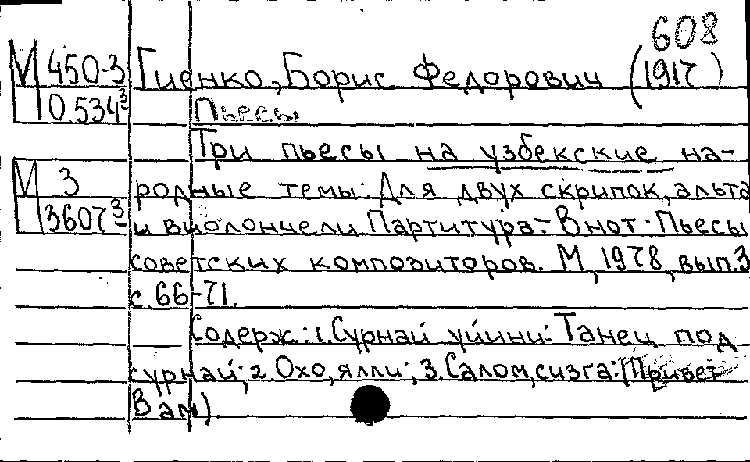 608
М 450-3 Гиенко, Борис Федорович (1917)
0.534³ Пьесы
Три пьесы на узбекские на-
М 3 родные темы: Для двух скрипок, альта
3607³ и виолончели Партитура.- В нот: Пьесы
советских композиторов. М, 1978, вып.3
с. 66-71.
Содерж: 1. Сурнай уйини: Танец под
сурнай; 2. Охо, ялли; 3. Салом, сизга: (Привет
Вам)